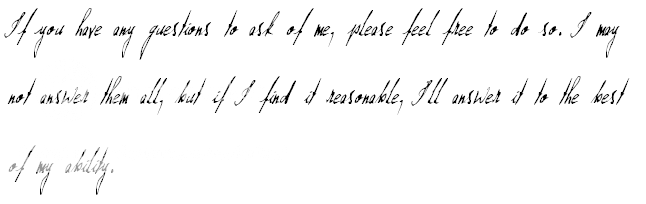 If you have any questions to ask of me, please feel free to do so. I may
not answer them all, but if I find it reasonable, I'll answer it to the best
of my ability.